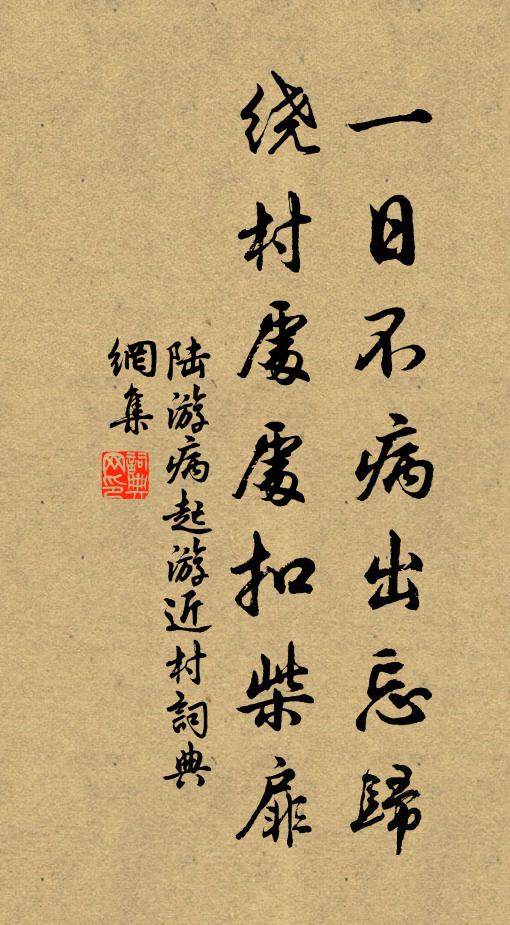 一日不病出忘歸
绕村處處扣柴扉
陆游病起游近村詞典
網集
詞典
网印